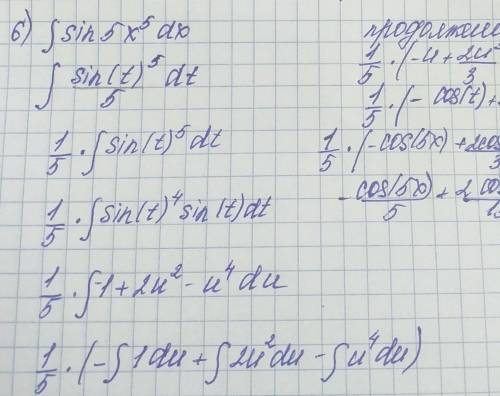 6) ∫ sin 5x⁵ dx
∫ sin(t)⁵/5 dt
1/5 · ∫ sin(t)⁵ dt
1/5 · ∫ sin(t)⁴ sin(t) dt
1/5 · ∫ -1 + 2u² - u⁴ du
1/5 · (-∫ 1 du + ∫ 2u² du - ∫ u⁴ du)
1/5 · (-u + 2u²/3
1/5 · (-cos(t) +
1/5 · (-cos(5x) + 2cos/3
-cos(5x)/5 + 2co